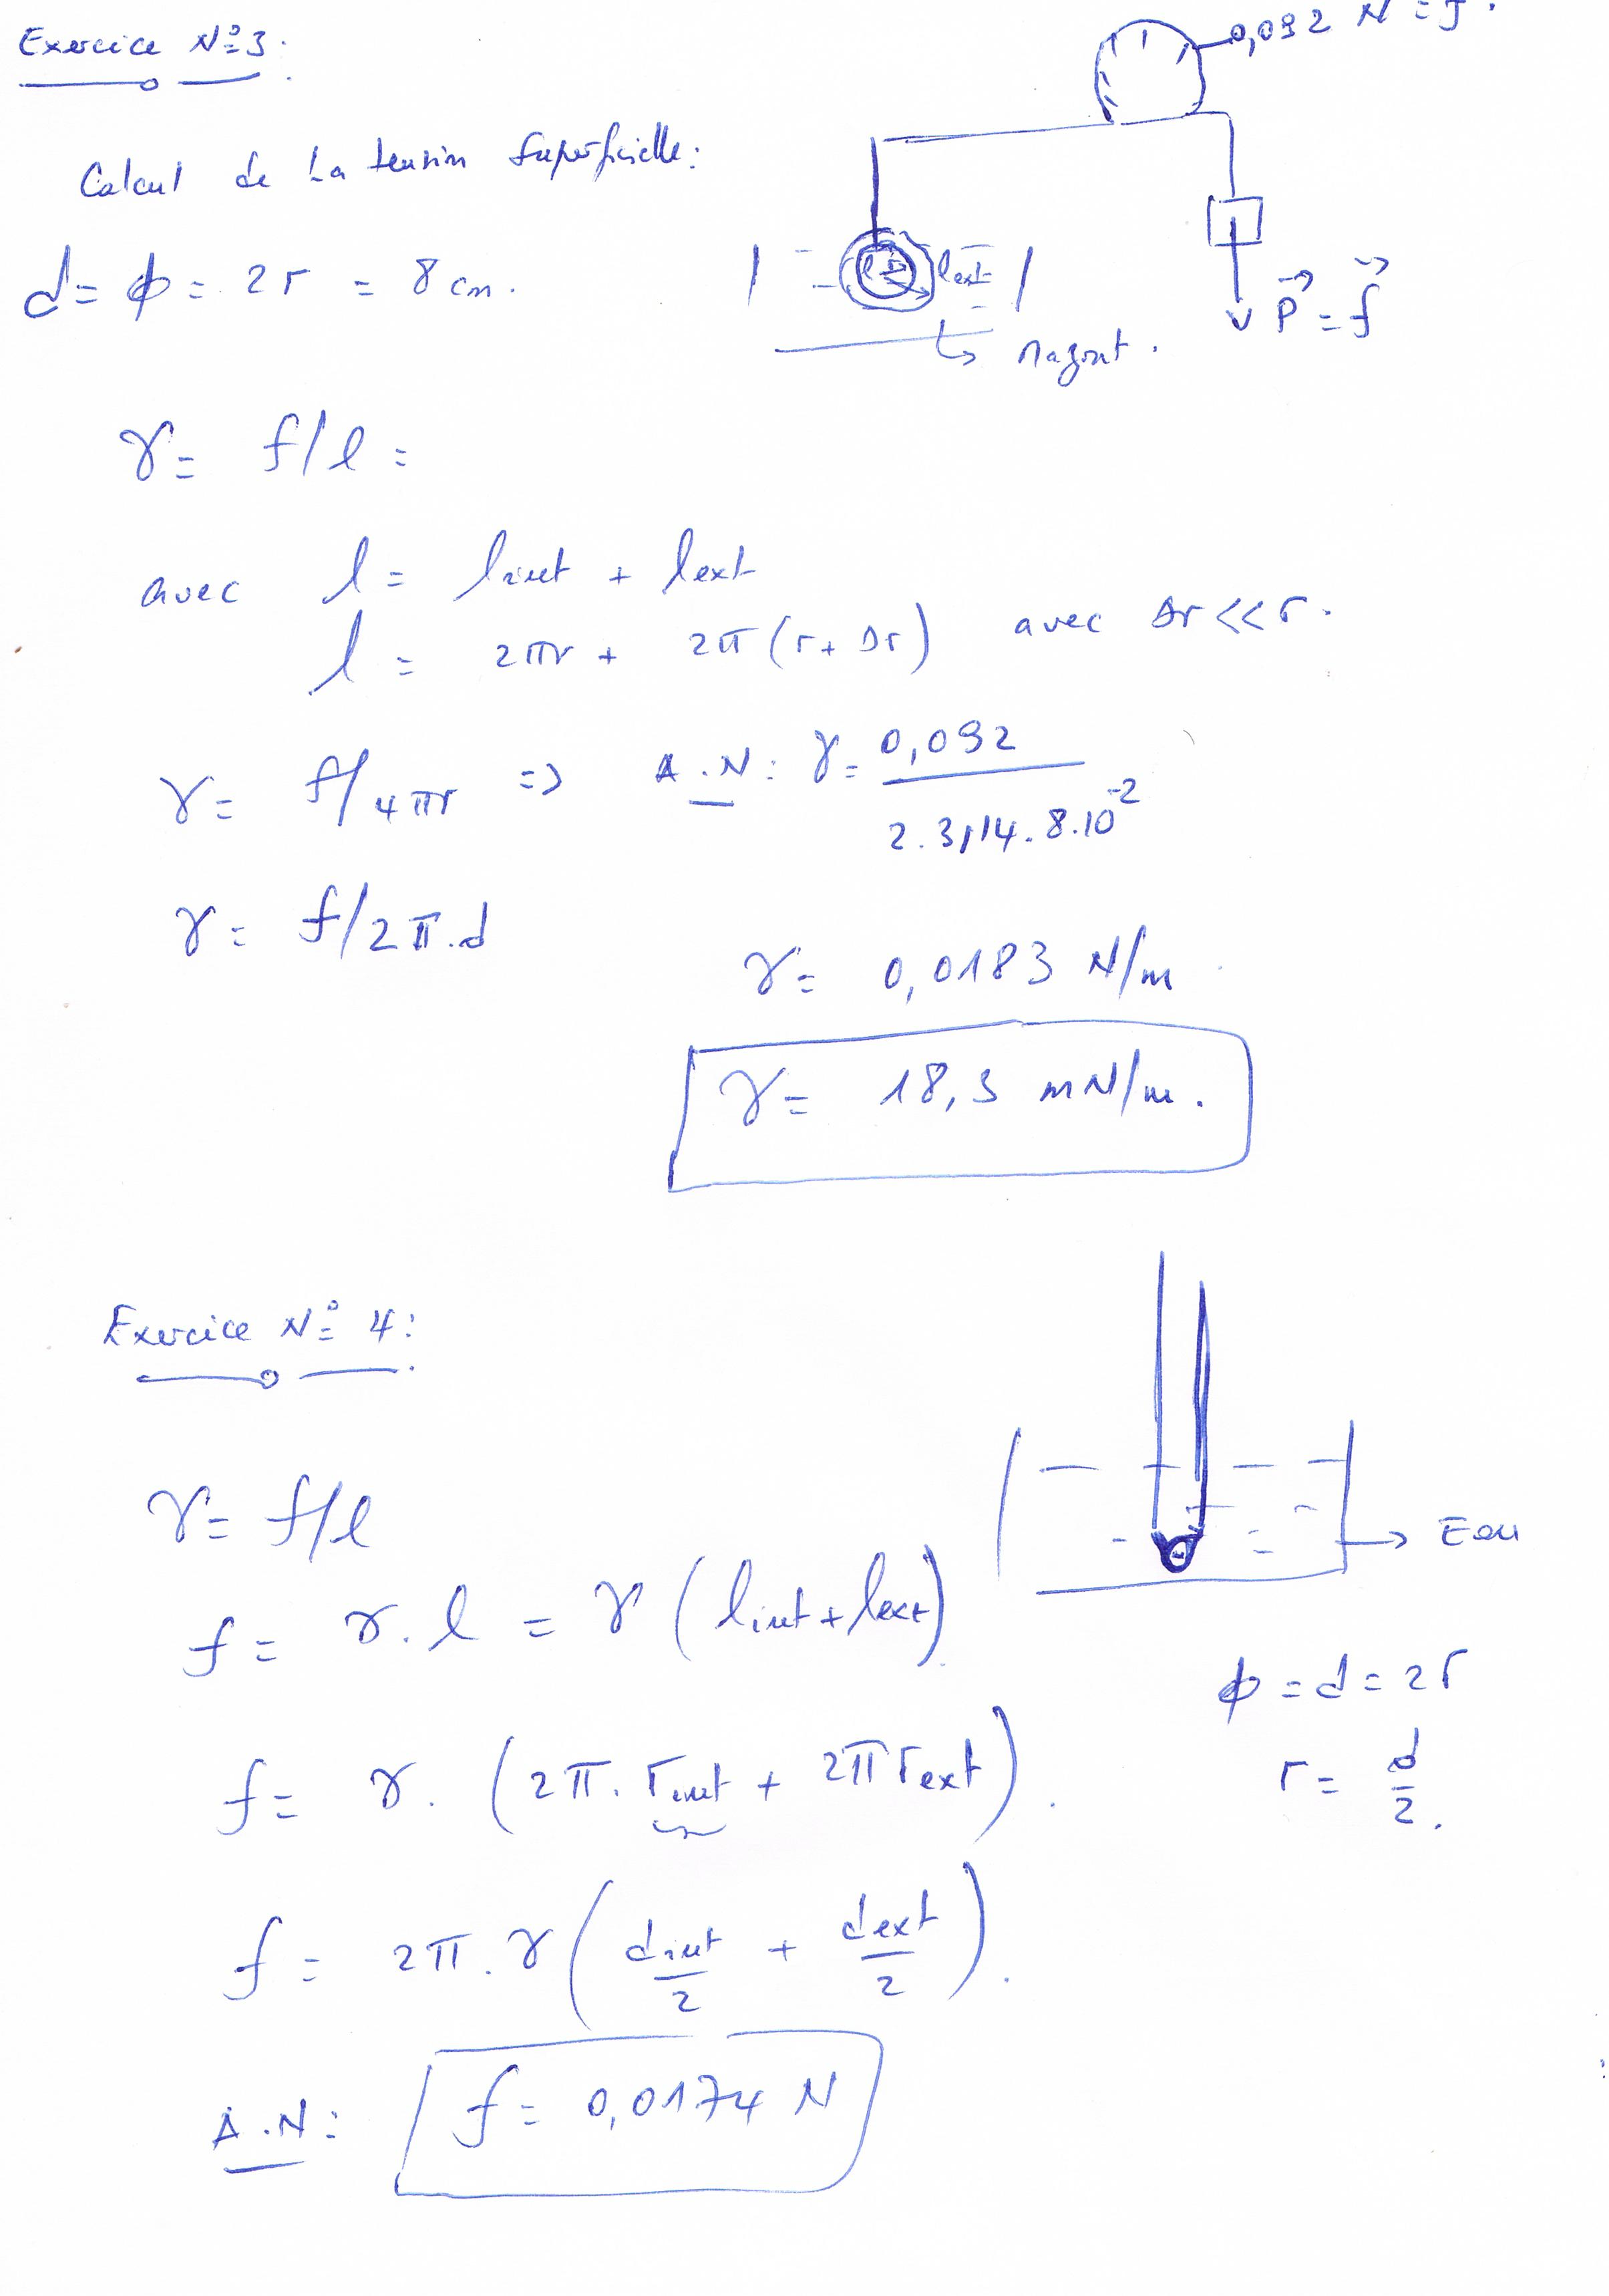 Exercice N°3:
0,092 N = f.
Calcul de La tension Superficielle:
d = ϕ = 2r = 8 cm.
lext
P = f
γ = f/l =
avec l = lint + lext
l = 2πr + 2π(r + Δr) avec Δr << r.
γ = f/4πr => A.N: γ = 0,092 / 2.3,14.8.10^-2
γ = f/2π.d
γ = 0,0183 N/m
γ = 18,3 mN/m.
Exercice N° 4:
γ = f/l
Eau
f = γ.l = γ (lint + lext)
ϕ = d = 2r
f = γ. (2π.rint + 2πrext).
r = d/2.
f = 2π.γ (dint/2 + dext/2).
A.N: f = 0,0174 N